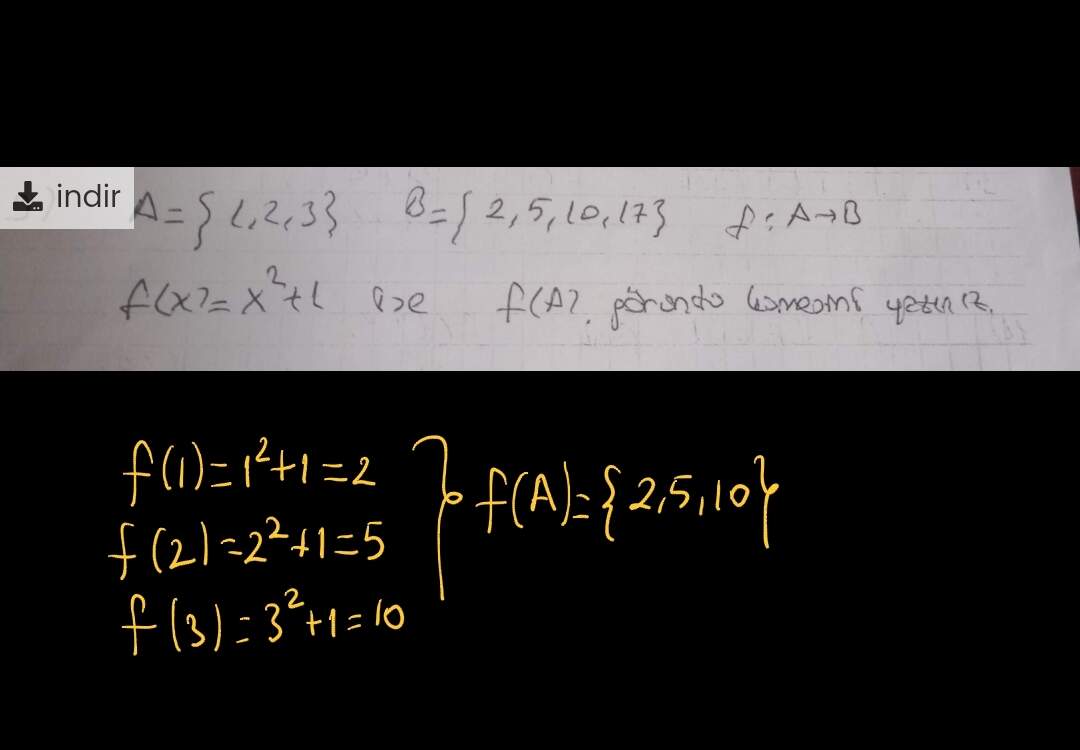 indir
A = {1, 2, 3} B = { 2, 5, 10, 17} f : A → B
f(x) = x² + 1 ise f(A) görüntü kümesini yazınız.
f(1) = 1² + 1 = 2
f(2) = 2² + 1 = 5
f(3) = 3² + 1 = 10
f(A) = {2, 5, 10}